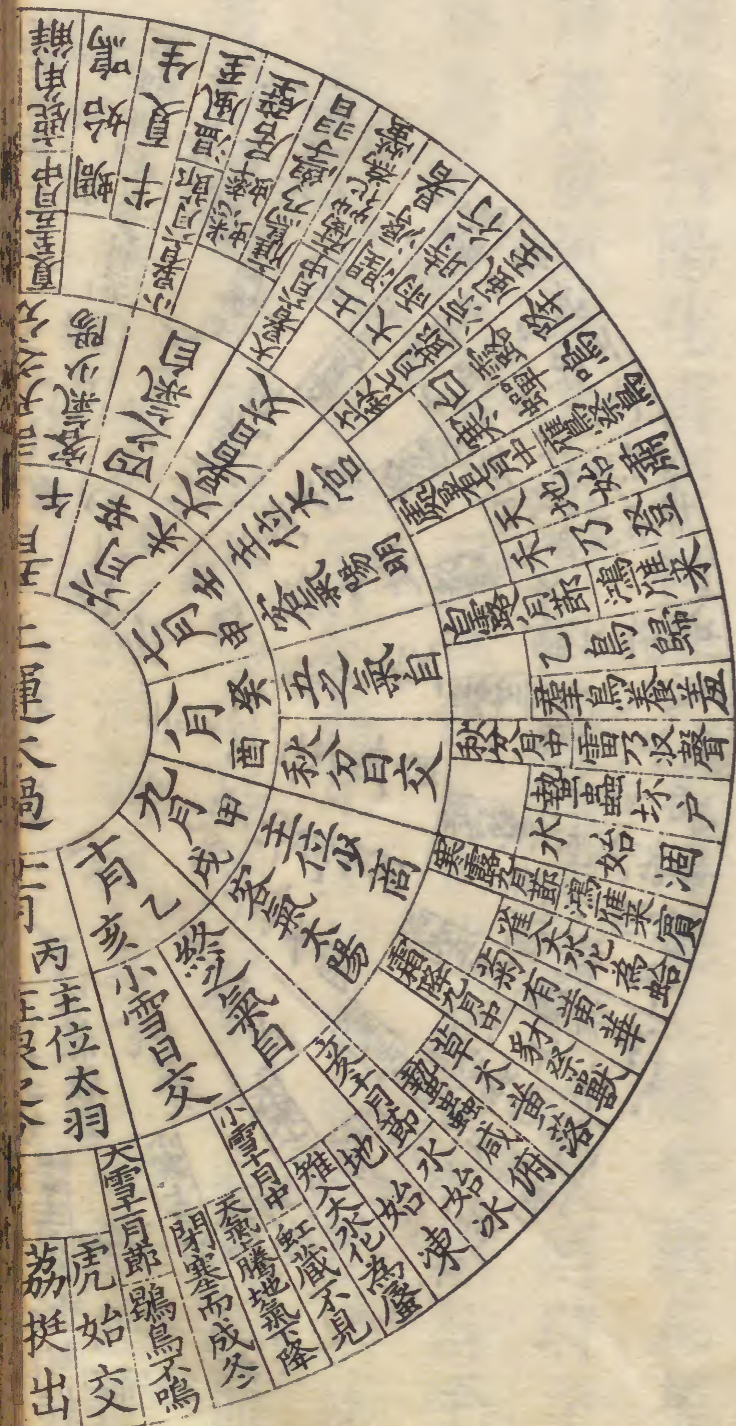 夏至五月中 鹿角解
蜩始鳴
半夏生
小暑六月節 溫風至
蟋蟀居壁
鷹乃學習
大暑六月中 腐草化為螢
土潤溽暑
大雨時行
立秋七月節 涼風至
白露降
寒蟬鳴
處暑七月中 鷹祭鳥
天地始肅
禾乃登
白露八月節 鴻雁來
乙鳥歸
羣鳥養羞
秋分八月中 雷乃收聲
蟄蟲坏戶
水始涸
寒露九月節 鴻雁來賓
雀入大水化為蛤
菊有黃華
霜降九月中 豺祭獸
草木黃落
蟄蟲咸俯
立冬十月節 水始冰
地始凍
雉入大水化為蜃
小雪十月中 虹藏不見
天氣上騰地氣下降
閉塞而成冬
大雪十一月節 鶡鳥不鳴
虎始交
荔挺出
客氣少陽
四之氣自
大暑日交
主位太宮
客氣陽明
五之氣自
秋分日交
主位少商
客氣太陽
終之氣自
小雪日交
主位太羽
五月 午
六月 辛未
七月 壬申
八月 癸酉
九月 甲戌
十月 乙亥
丙